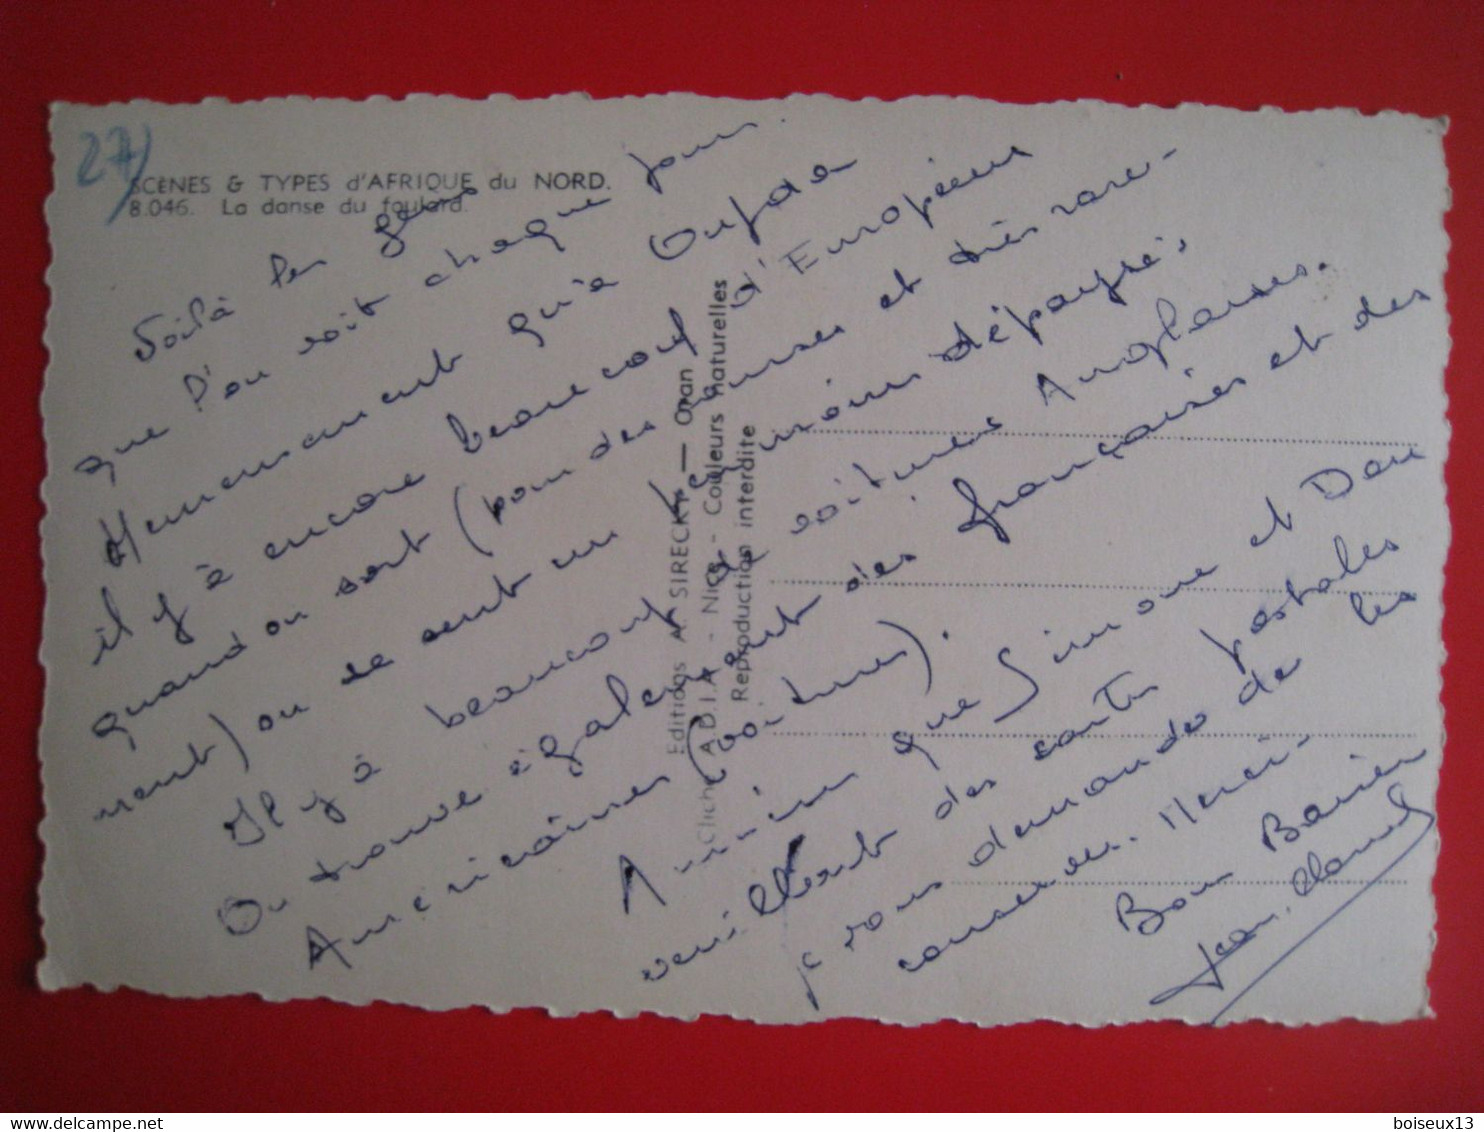 27)
SCÈNES & TYPES d'AFRIQUE du NORD.
8.046. La danse du foulard.
Voilà les gens
que l'on voit chaque jour.
Heureusement qu'à Oujda
il y à encore beaucoup d'Européens
quand on sort (pour des courses et très rare-
ment) on se sent un peu moins dépaysé.
Il y à beaucoup de voitures Anglaises.
On trouve également des françaises et des
Américaines (voitures).
Arrivez que Simone et Dan
veuillent des cartes postales
je vous demande de les
conserver. Merci.
Bons Baisers
Jean. Claude
Editions A. SIRECKY — Oran
Cliché A.D.I.A. - Nice - Couleurs naturelles
Reproduction interdite
boiseux13
delcampe.net